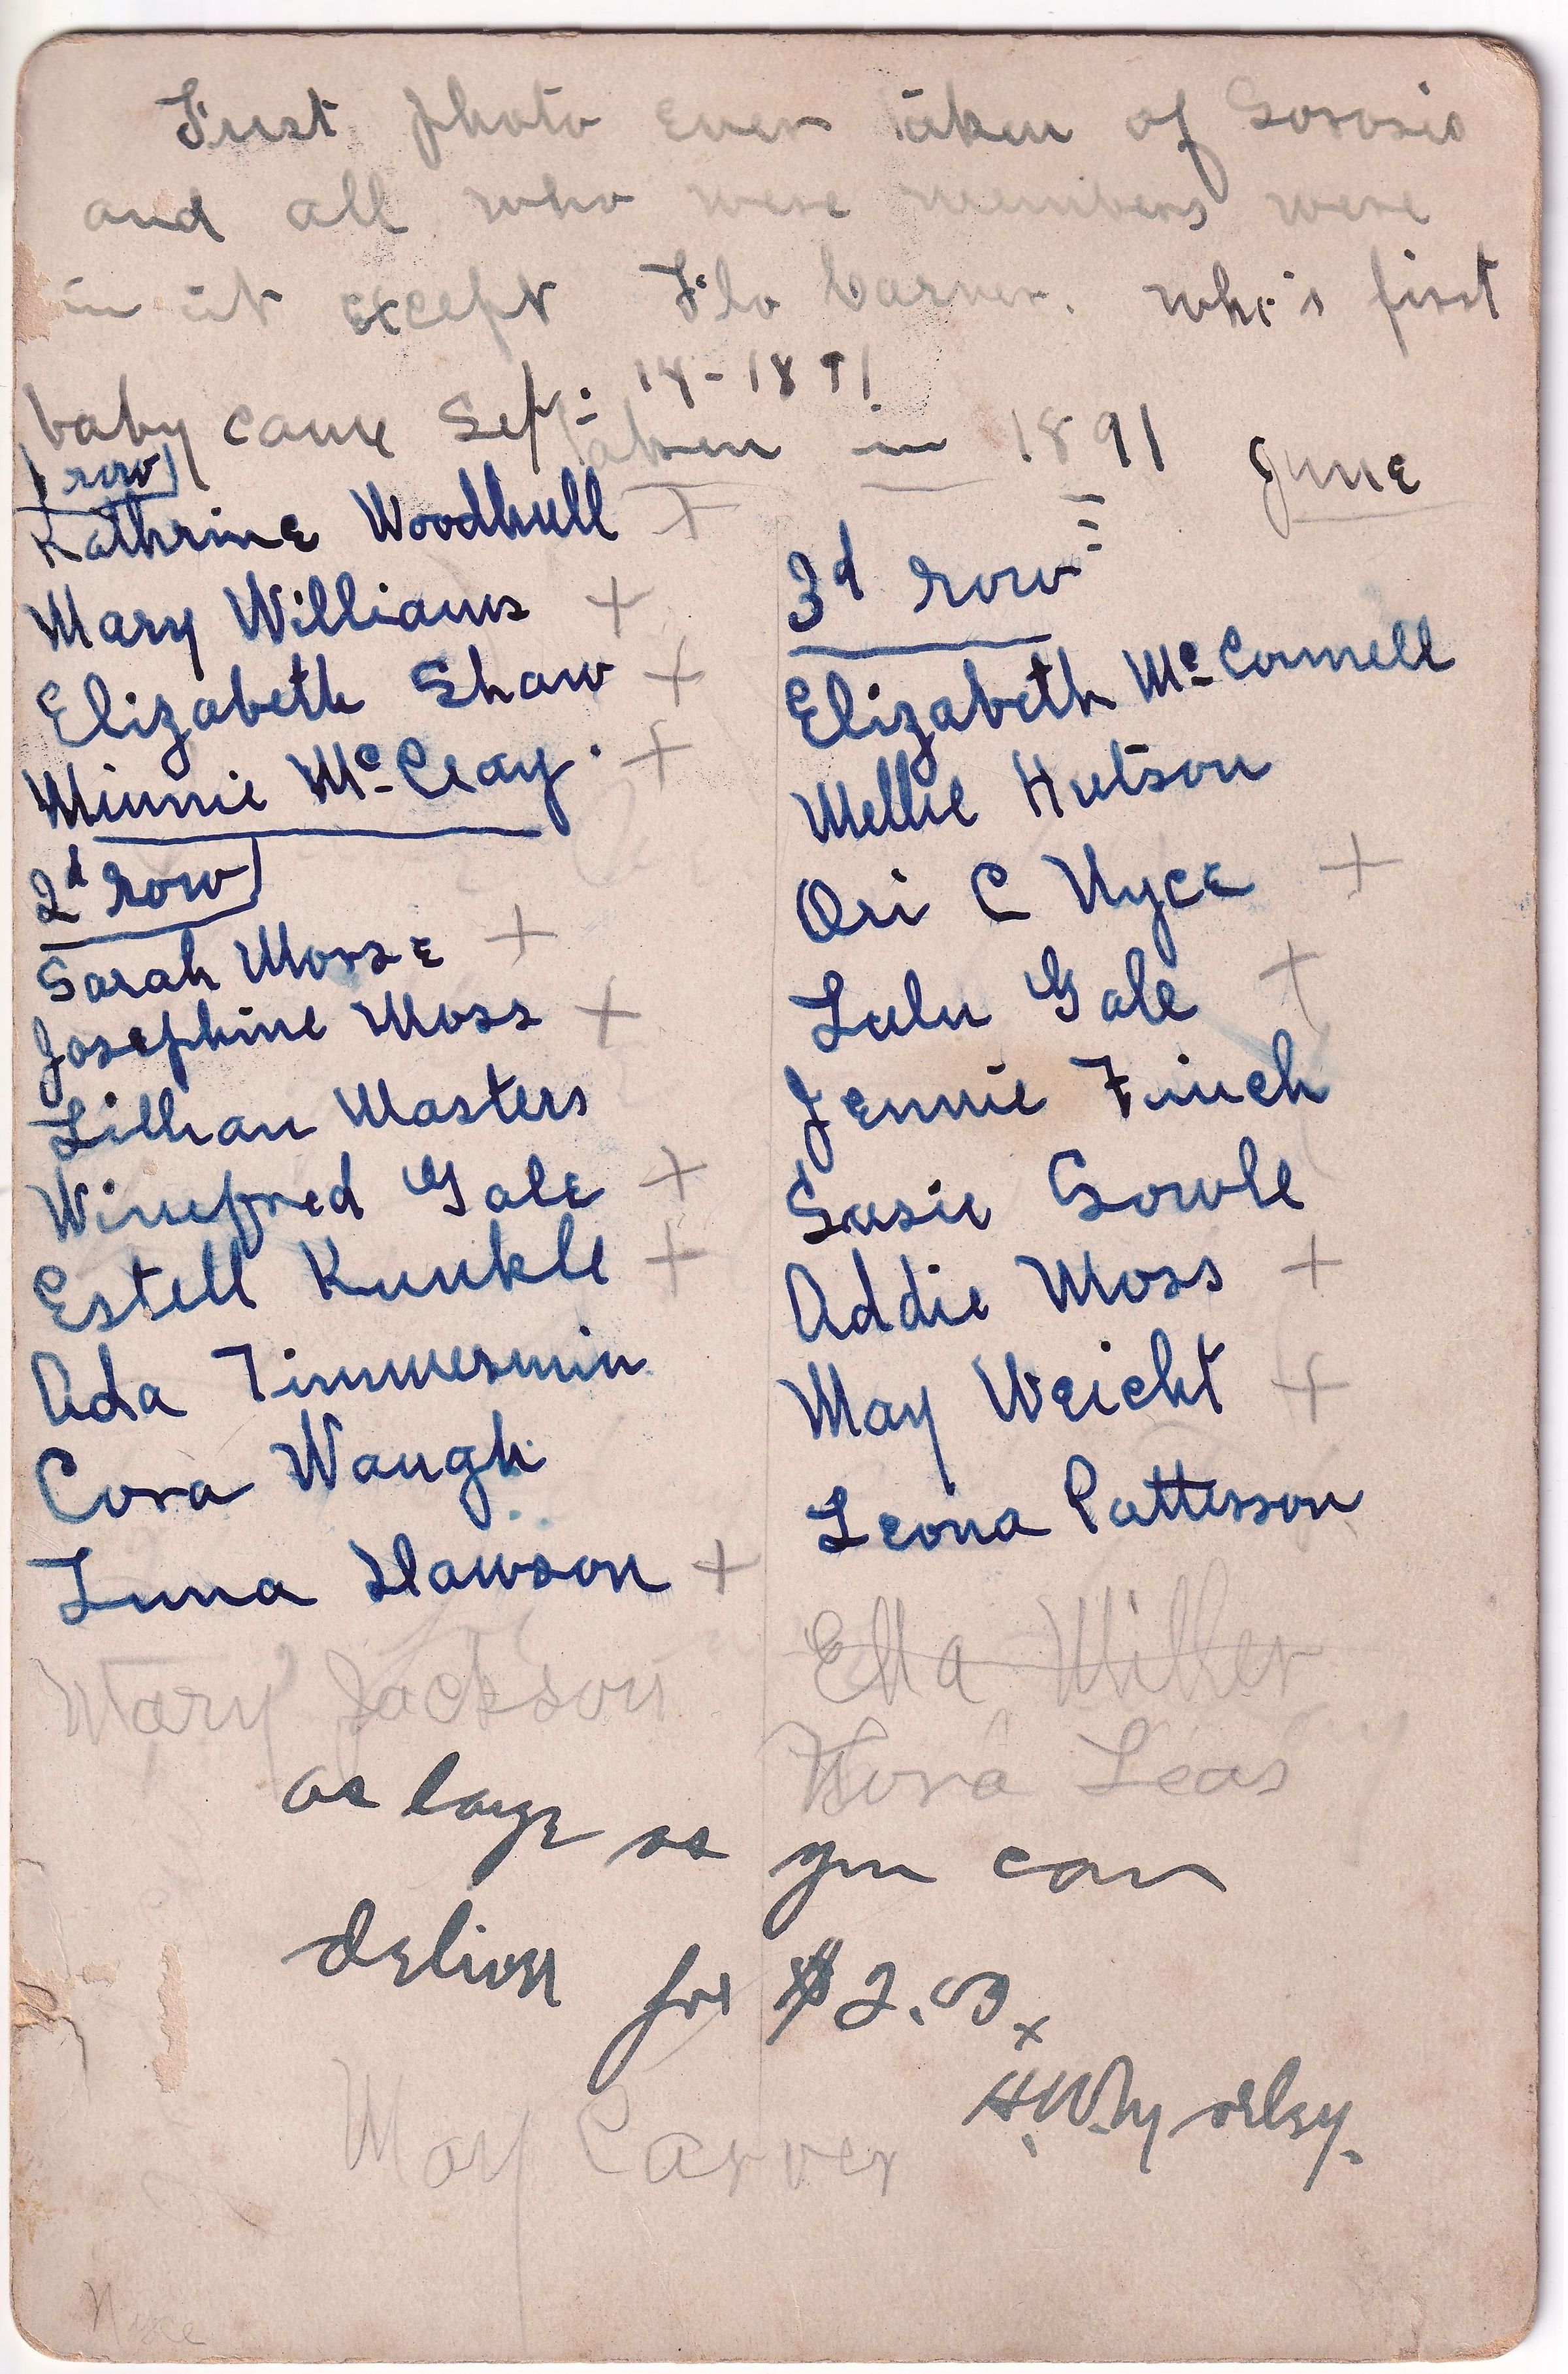 First photo ever taken of Sorosis
and all who were members were
in it except Flo Carver. who's first
baby came Sept: 14-1891
taken in 1891 June
1 row
Kathrine Woodhull +
Mary Williams +
Elizabeth Shaw +
Minnie McCleay. +
2d row
Sarah Morse +
Josephine Moss +
Lillian Masters
Winefred Gale +
Estell Kunkle +
Ada Timmermin
Cora Waugh
Luna Dawson +
Mary Jackson
3d row
Elizabeth McConnell
Mellie Hutson
Ori C Nyce +
Lulu Gale +
Jennie Finch
Susie Sowle
Addie Moss +
May Weicht +
Leona Pattesson
Ella Miller
Nora Leas
as large as you can
deliver for $2.00 x
H.W.
May Carver
Nyce